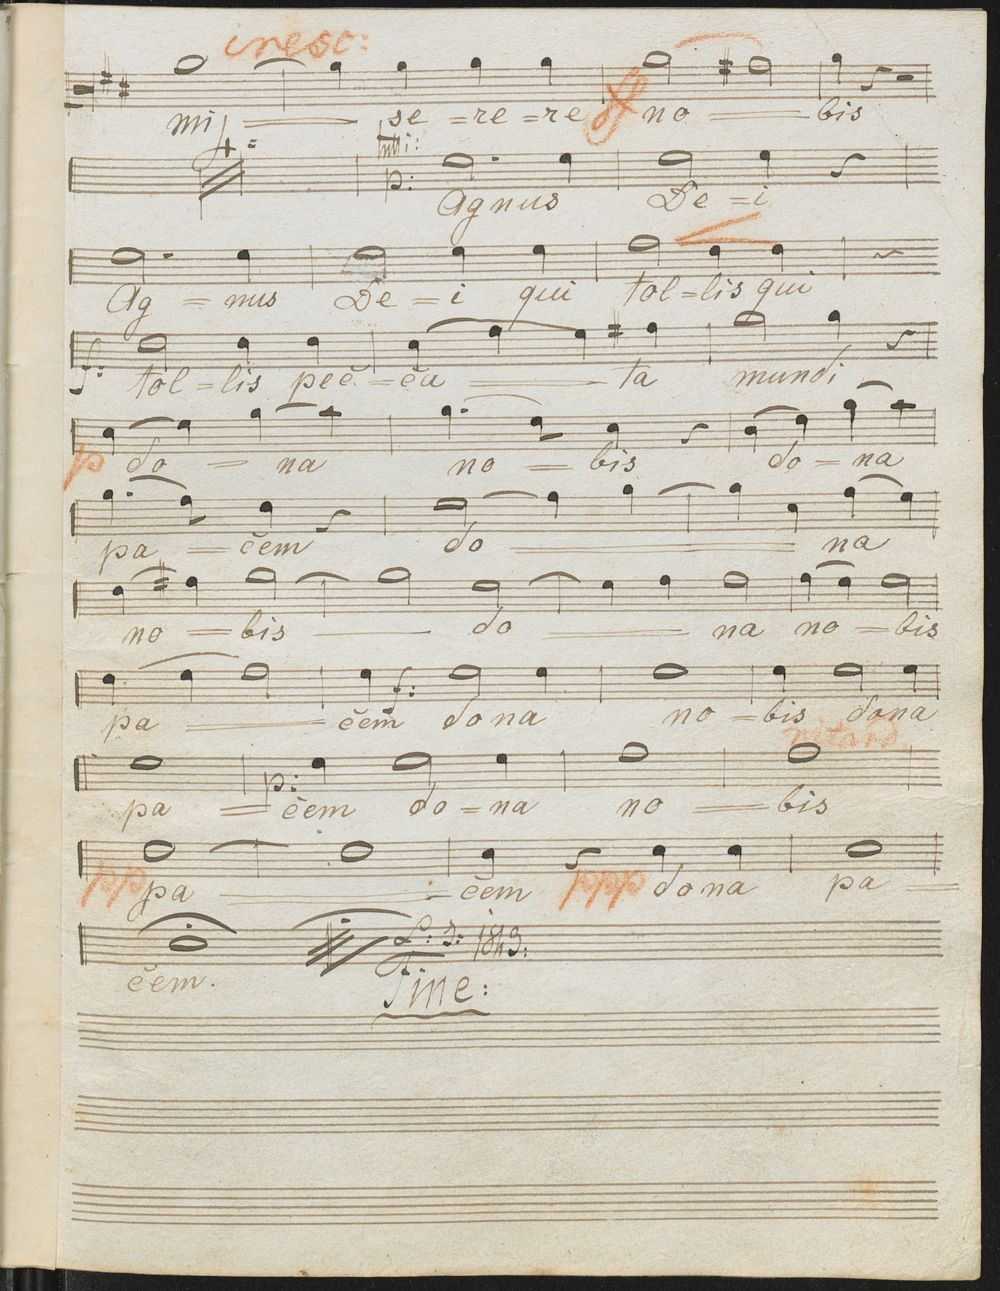 cresc:
mi — se = re = re f no — bis
4:
tutti:
p: Agnus De = i
Ag = nus De = i qui tol = lis qui
f: tol = lis pec̄ = c̄a — ta mundi
p do = na no = bis do = na
pa = c̄em do — na
no = bis — do — na no = bis
pa — c̄em f: dona no = bis dona
ritard.
pa = p: c̄em do = na no — bis
pp pa — c̄em ppp dona pa =
c̄em. 1843.
Fine: